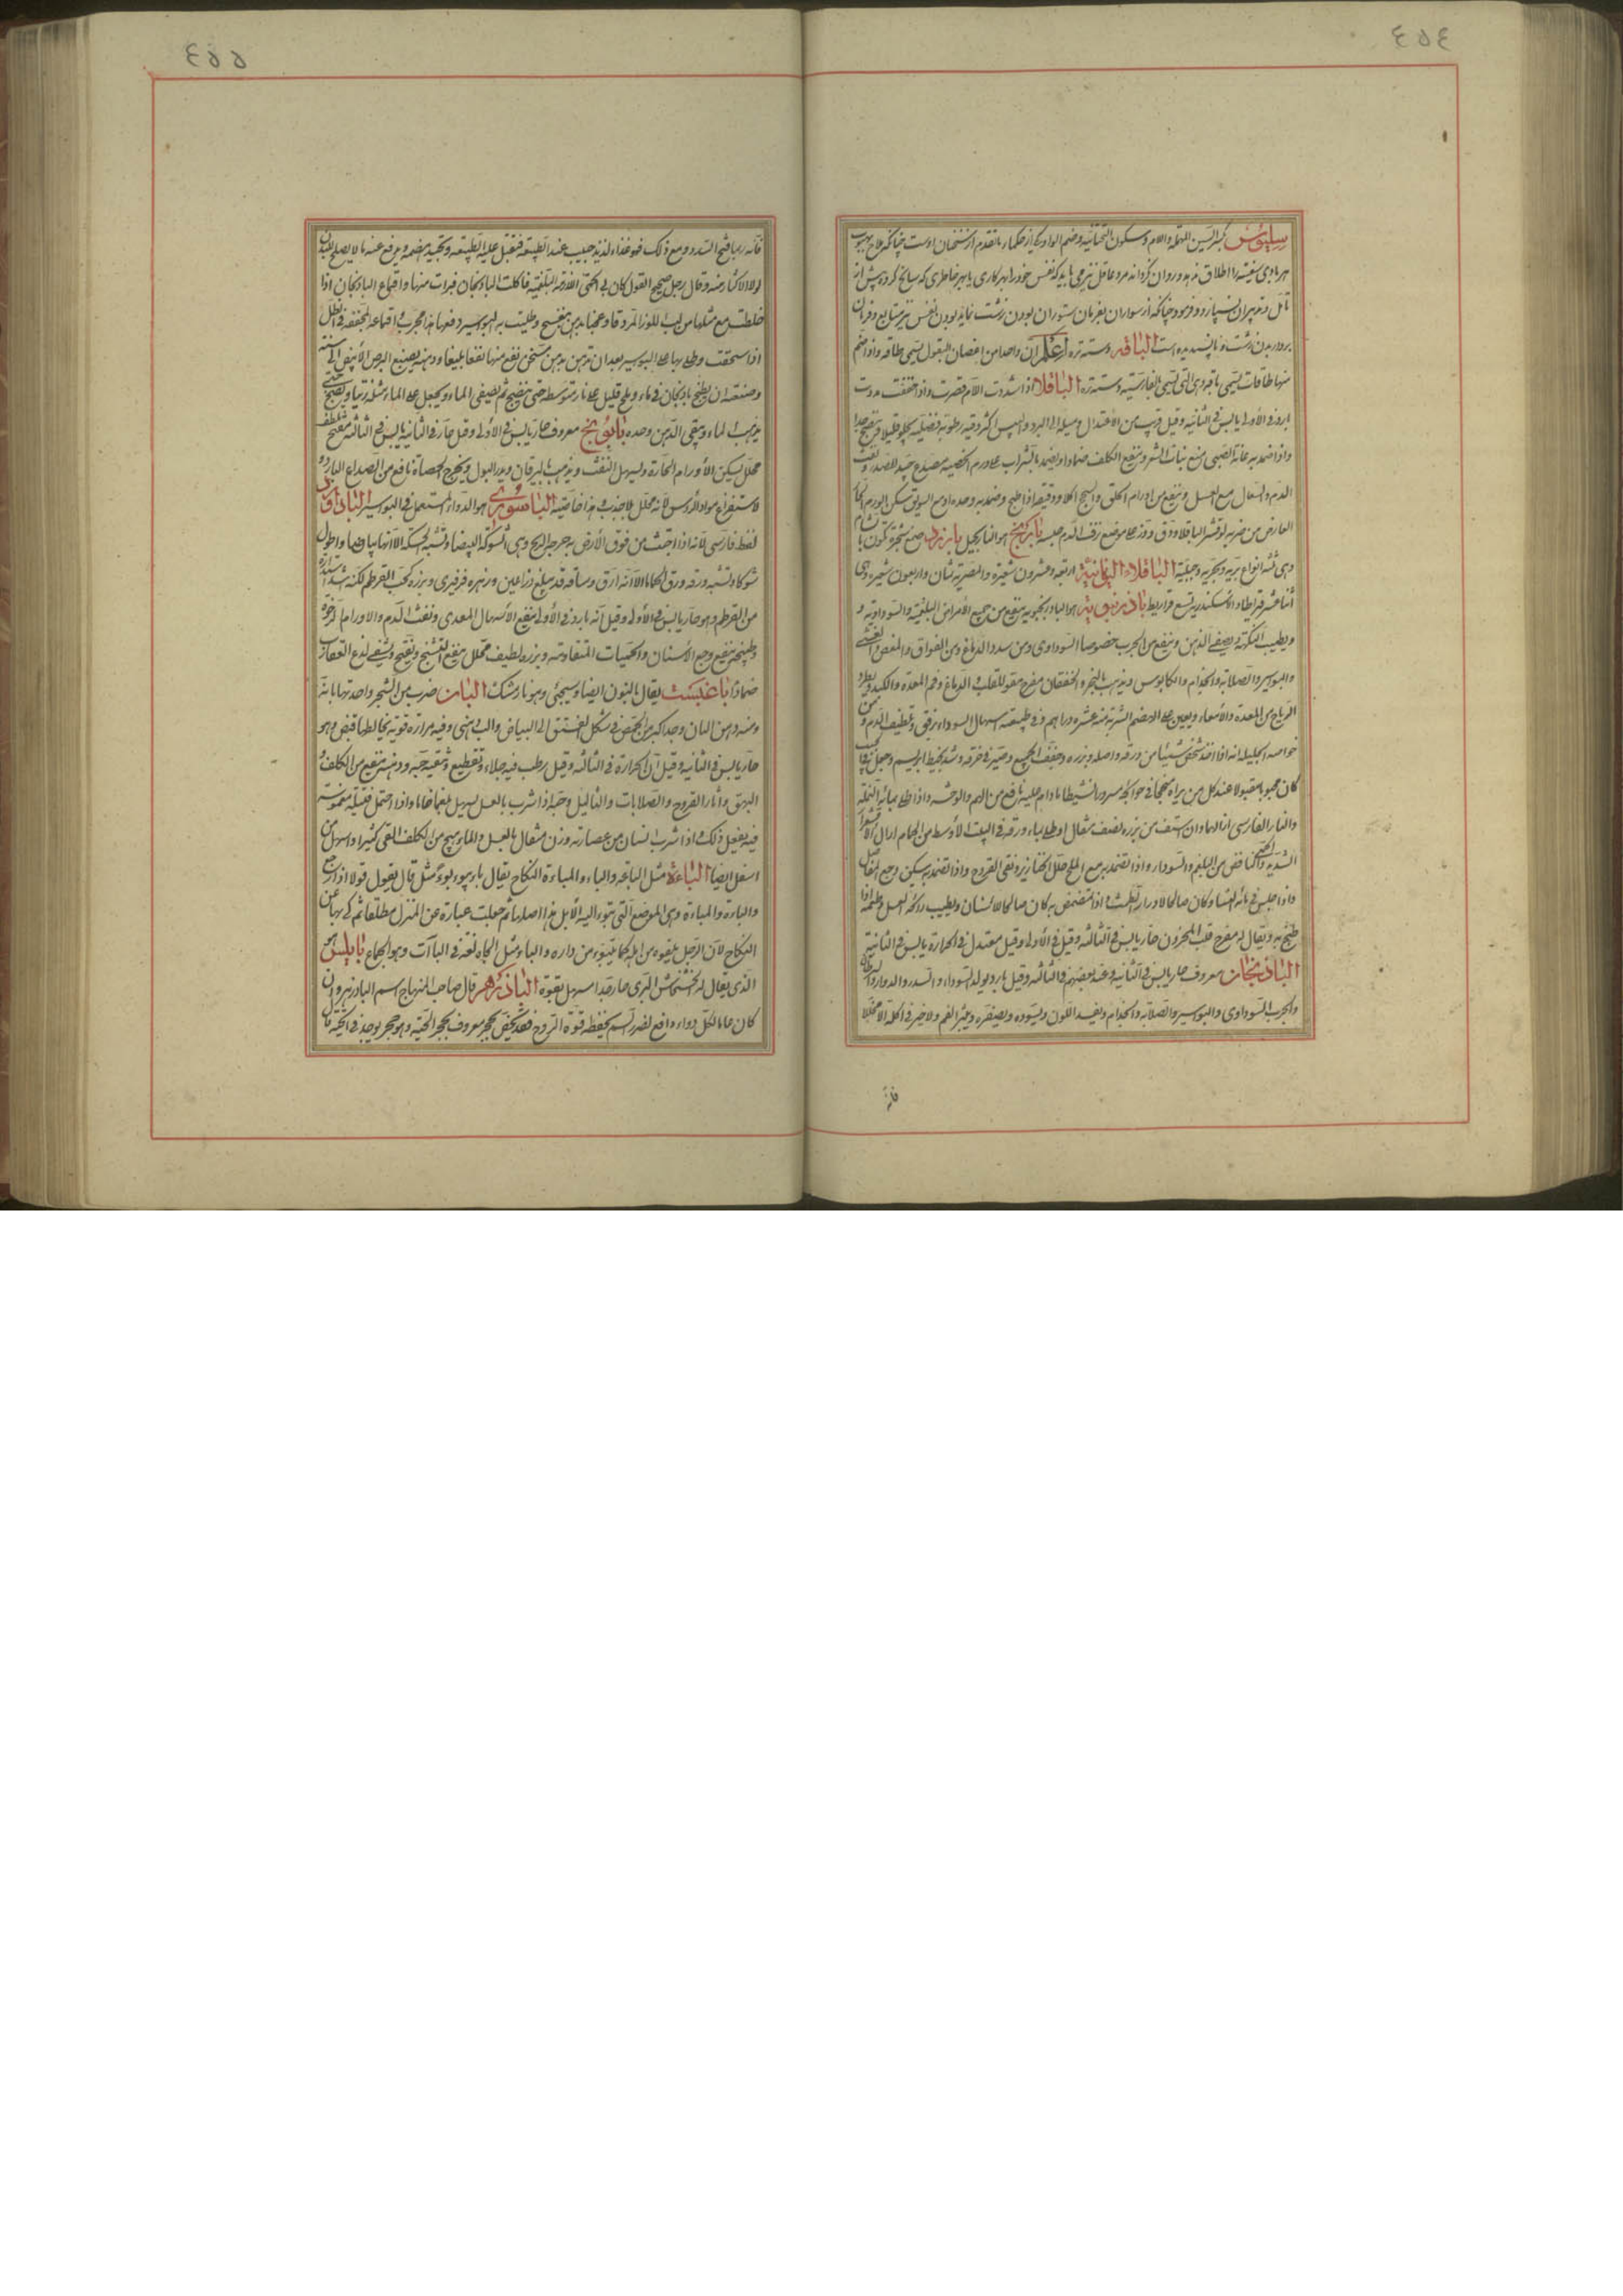 ٤٥٤
سلیوس بکسر السین المهملة واللام وسکون التحتانیة وضم الواو یکی از حکماء ما تقدم از سخنان اوست چنانکه ملاح بهبوب
هر بادی سفینه را اطلاق ندهد و روان نگرداند مرد عاقل نیز می باید که نفس خود را بهر کاری یا بهر خاطری که سانح کردد پیش از
تأمل و تدبیر آن نسپارد و فرمود چنانکه از سواران بفرمان ستوران بودن زشت نماید بودن نفس نیز متابع و فرمان
بردار بدن زشت و ناپسندیده است الباقه دسته تره اعلم ان واحدا من اغصان البقول تسمی طاقه واذا ضم
منها طاقات تسمی باقه وهی التی تسمی بالفارسیة دسته تره الباقلا اذا شددت اللام قصرت واذا خففت مددت
بارد فی الاولی یابس فی الثانیة وقیل قریب من الاعتدال ومیله الی البرد والیبس اکثر وفیه رطوبة فضلیة
واذا ضمد به عانة الصبی منع نبات الشعر وینفع الکلف ضمادا ویضمد بالشراب علی ورم الخصیة مصدع جید للصدر ونفث
الدم والسعال مع العسل وینفع من اورام الحلق والسحج اکلا ودقیقه اذا طبخ وضمد به وحده او مع السویق سکن الورم
العارض من ضربة او قشر الباقلا ودق وذر علی موضع نزف الدم حبسه بابرکهنج هو النارجیل بارزد صمغ شجرة تکون بالشام
وهی ثلثة انواع بریة وبحریة وجبلیة الباقلاء الیمانیة اربعة وعشرون شعیرة والمصریة ثمان واربعون شعیرة وهی
اثنا عشر قیراطا والاسکندریة تسع قراریط باذرنبویه هو البادرنجبویه ینفع من جمیع الامراض البلغمیة والسوداویة و
ویطیب النکهة ویصفی الذهن وینفع من الجرب خصوصا السوداوی ومن سدد الدماغ ومن الفواق والمغص والغشی
والبواسیر والصلابة والجذام والکابوس ویذهب بالبخر والخفقان مفرح مقو للقلب والدماغ وفم المعدة والکبد ویطرد
الریاح من المعدة والامعاء ویعین علی الهضم الشربة منه عشرة دراهم وفی طبیعته اسهال السوداء برفق وتلطیف الدم ومن
خواصه الجلیلة انه اذا اخذ شخص شیئا من ورقه واصله وبزره وجفف الجمیع وصیر فی خرقة وشد بخیط ابریسم وجعل
کان محبوبا مقبولا عند کل من یراه منجحا فی حوائجه مسرورا نشیطا ما دام علیه نافع من الهم والوحشة واذا طلی بمائه النملة
والنار الفارسی ازالهما وان استف من بزره نصف مثقال او طلی بماء ورقه فی البیت الاوسط من الحمام ازال الاقشعرار
الشدید والنافض من البلغم والسوداء واذا تضمد به مع الملح حلل الخنازیر ونقی القروح واذا تضمد به سکن وجع المفاصل
واذا جلس فی مائه النساء کان صالحا لادرار الطمث واذا تمضمض به کان صالحا للاسنان ویطیب رائحة العسل وطعمه اذا
طبخ به ویقال له مفرح قلب المحزون حار یابس فی الثالثة وقیل فی الاولی وقیل معتدل فی الحرارة یابس فی الثانیة
الباذنجان معروف حار یابس فی الثانیة وعند بعضهم فی الثالثة وقیل بارد یولد السوداء والسدد والدوار والسرطان
والجرب السوداوی والبواسیر والصلابة والجذام ویفسد اللون ویسوده ویصفره ویبثر الفم ولا خیر فی اکله الا مخللا
فانه
٤٥٥
فانه ربما فتح السدد ومع ذلک فهو غذاء لذیذ حبیب عند الطبیعة فتقبل علیه الطبیعة وتجید هضمه ویرفع عنه ما لا یصلح للبدن
لولا الاکثار منه وقال رجل صحیح القول کان بی الحمی اللازمة البلغمیة فاکلت الباذنجان فبرأت منها واقماع الباذنجان اذا
خلطت مع مثلها من لب اللوز المر دقا وعجنا بدهن بنفسج وطلیت به البواسیر دفعها هذا مجرب واقماعه المجففة فی الظل
اذا سحقت وطلی بها علی البواسیر بعد ان تدهن بدهن مسخن نفع منها نفعا بلیغا ودهنه یصبغ البرص الابیض الی سنة
وصنعته ان یطبخ باذنجان فی ماء وملح قلیل علی نار متوسطة حتی ینضج ثم یصفی الماء ویجعل علی الماء مثله زیتا ویطبخ حتی
یذهب الماء ویبقی الدهن وحده بابونج معروف حار یابس فی الاولی وقیل حار فی الثانیة یابس فی الثالثة مفتح ملطف
محلل یسکن الاورام الحارة ویسهل النفث ویذهب بالیرقان ویدر البول ویخرج الحصاة نافع من الصداع البارد و
لاستفراغ مواد الراس لانه محلل بلا جذب وهذا خاصیته الباسوری هو الدواء المستعمل فی البواسیر الباذاورد
لفظ فارسی لانه اذا اجتث من فوق الارض به جرحه الریح وهی الشوکة البیضاء وتشبه الحسکة الا انها بیاضا واطول
شوکا وتشبه ورقه ورق الحماما الا انه ارق وساقه قد یبلغ ذراعین وزهره فرفیری وبزره کحب القرطم لکنه اشد استدارة
من القرطم وهو حار یابس فی الاولی وقیل انه بارد فی الاولی ینفع الاسهال المعدی ونفث الدم والاورام الرخوة
وطبیخه ینفع وجع الاسنان والحمیات المتقادمة وبزره لطیف محلل ینفع التشنج ویفتح ویشفی لدغ العقارب
ضمادا باغبست یقال بالنون ایضا وسیجئ وهو نارمشک البان ضرب من الشجر واحدتها بانة
ومنه دهن البان وحبه اکبر من الحمص فی شکل الفستق الی البیاض والب دهنی وفیه مرارة قویة یخالطها قبض وهو
حار یابس فی الثانیة وقیل ان الحرارة فی الثالثة وقیل رطب فیه جلاء وتقطیع وتنقیة حبه ودهنه ینفع من الکلف و
البهق واثار القروح والصلابات والثآلیل وحبه اذا شرب بالعسل یسهل بلغما خاما واذا احتمل فتیلة مغموسة
فیه یفعل ذلک واذا شرب انسان من عصارته وزن مثقال بالعسل والماء یهیج من الکلف القئ کثیرا واسهل من
اسفل ایضا الباءة مثل الباعة والباء والمباءة النکاح یقال باء یبوء بوءا مثل قال یقول قولا اذا رجع
والباءة والمباءة وهی الموضع التی تبوء الیه الابل هذا اصلها ثم جعلت عبارة عن المنزل مطلقا ثم کنی بها عن
النکاح لان الرجل یتبوء من اهله کما یتبوء من داره والباء مثل الجاه لغة فی الباآت وهو الجماع بابلس هو
الذی یقال له الخشخاش البری حار جدا مسهل بقوة الباذزهر قال صاحب المنهاج اسم الباذزهر وان
کان عاما لکل دواء دافع لضرر السم بحفظه قوة الروح فقد یخص بحجر معروف بحجر الحیة وهو حجر یوجد فی الحیة